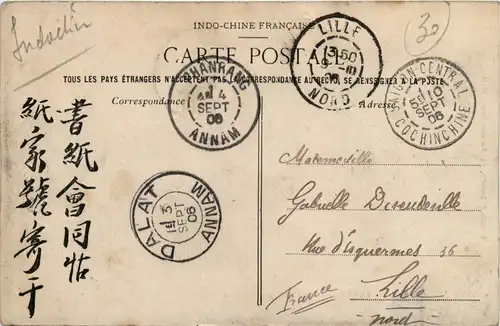 Indochin
30
INDO-CHINE FRANÇAISE
CARTE POSTALE
TOUS LES PAYS ÉTRANGERS N'ACCEPTENT PAS LA CORRESPONDANCE AU RECTO, SE RENSEIGNER A LA POSTE
Correspondance
Adresse
LILLE
NORD
PHANRANG
4
SEPT
06
ANNAM
CENTRAL
10
SEPT
06
COCHINCHINE
DALAT
3
SEPT
06
ANNAM
書紙會同怙
紙家號寄于
Mademoiselle
Gabrielle
Rue d'Isquermes 36
Lille
France
- Nord -